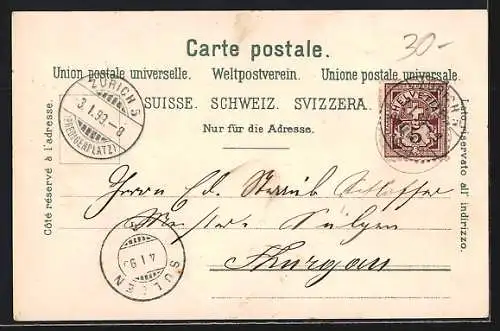 Carte postale.
30-
Union postale universelle. Weltpostverein. Unione postale universale.
SUISSE. SCHWEIZ. SVIZZERA.
Nur für die Adresse.
Côté réservé à l'adresse.
Lato riservato all' indirizzo.
ZÜRICH 5
3.I.99.-8
(PREDIGERPLATZ)
HELVETIA
5
Herrn Ed. Straub
Sulgen
Thurgau
SULGEN
4.I.9